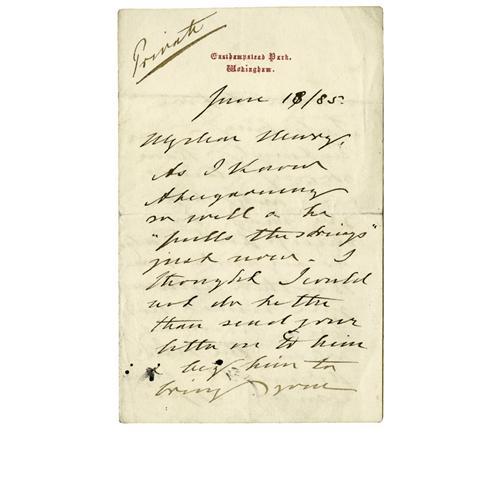 Private
Easthampstead Park,
Wokingham.
June 18/85.
My dear Henry,
As I know
Abergavenny
so well & he
"pulls the strings"
just now. I
thought I could
not do better
than send your
letter on to him
& beg him to
bring your